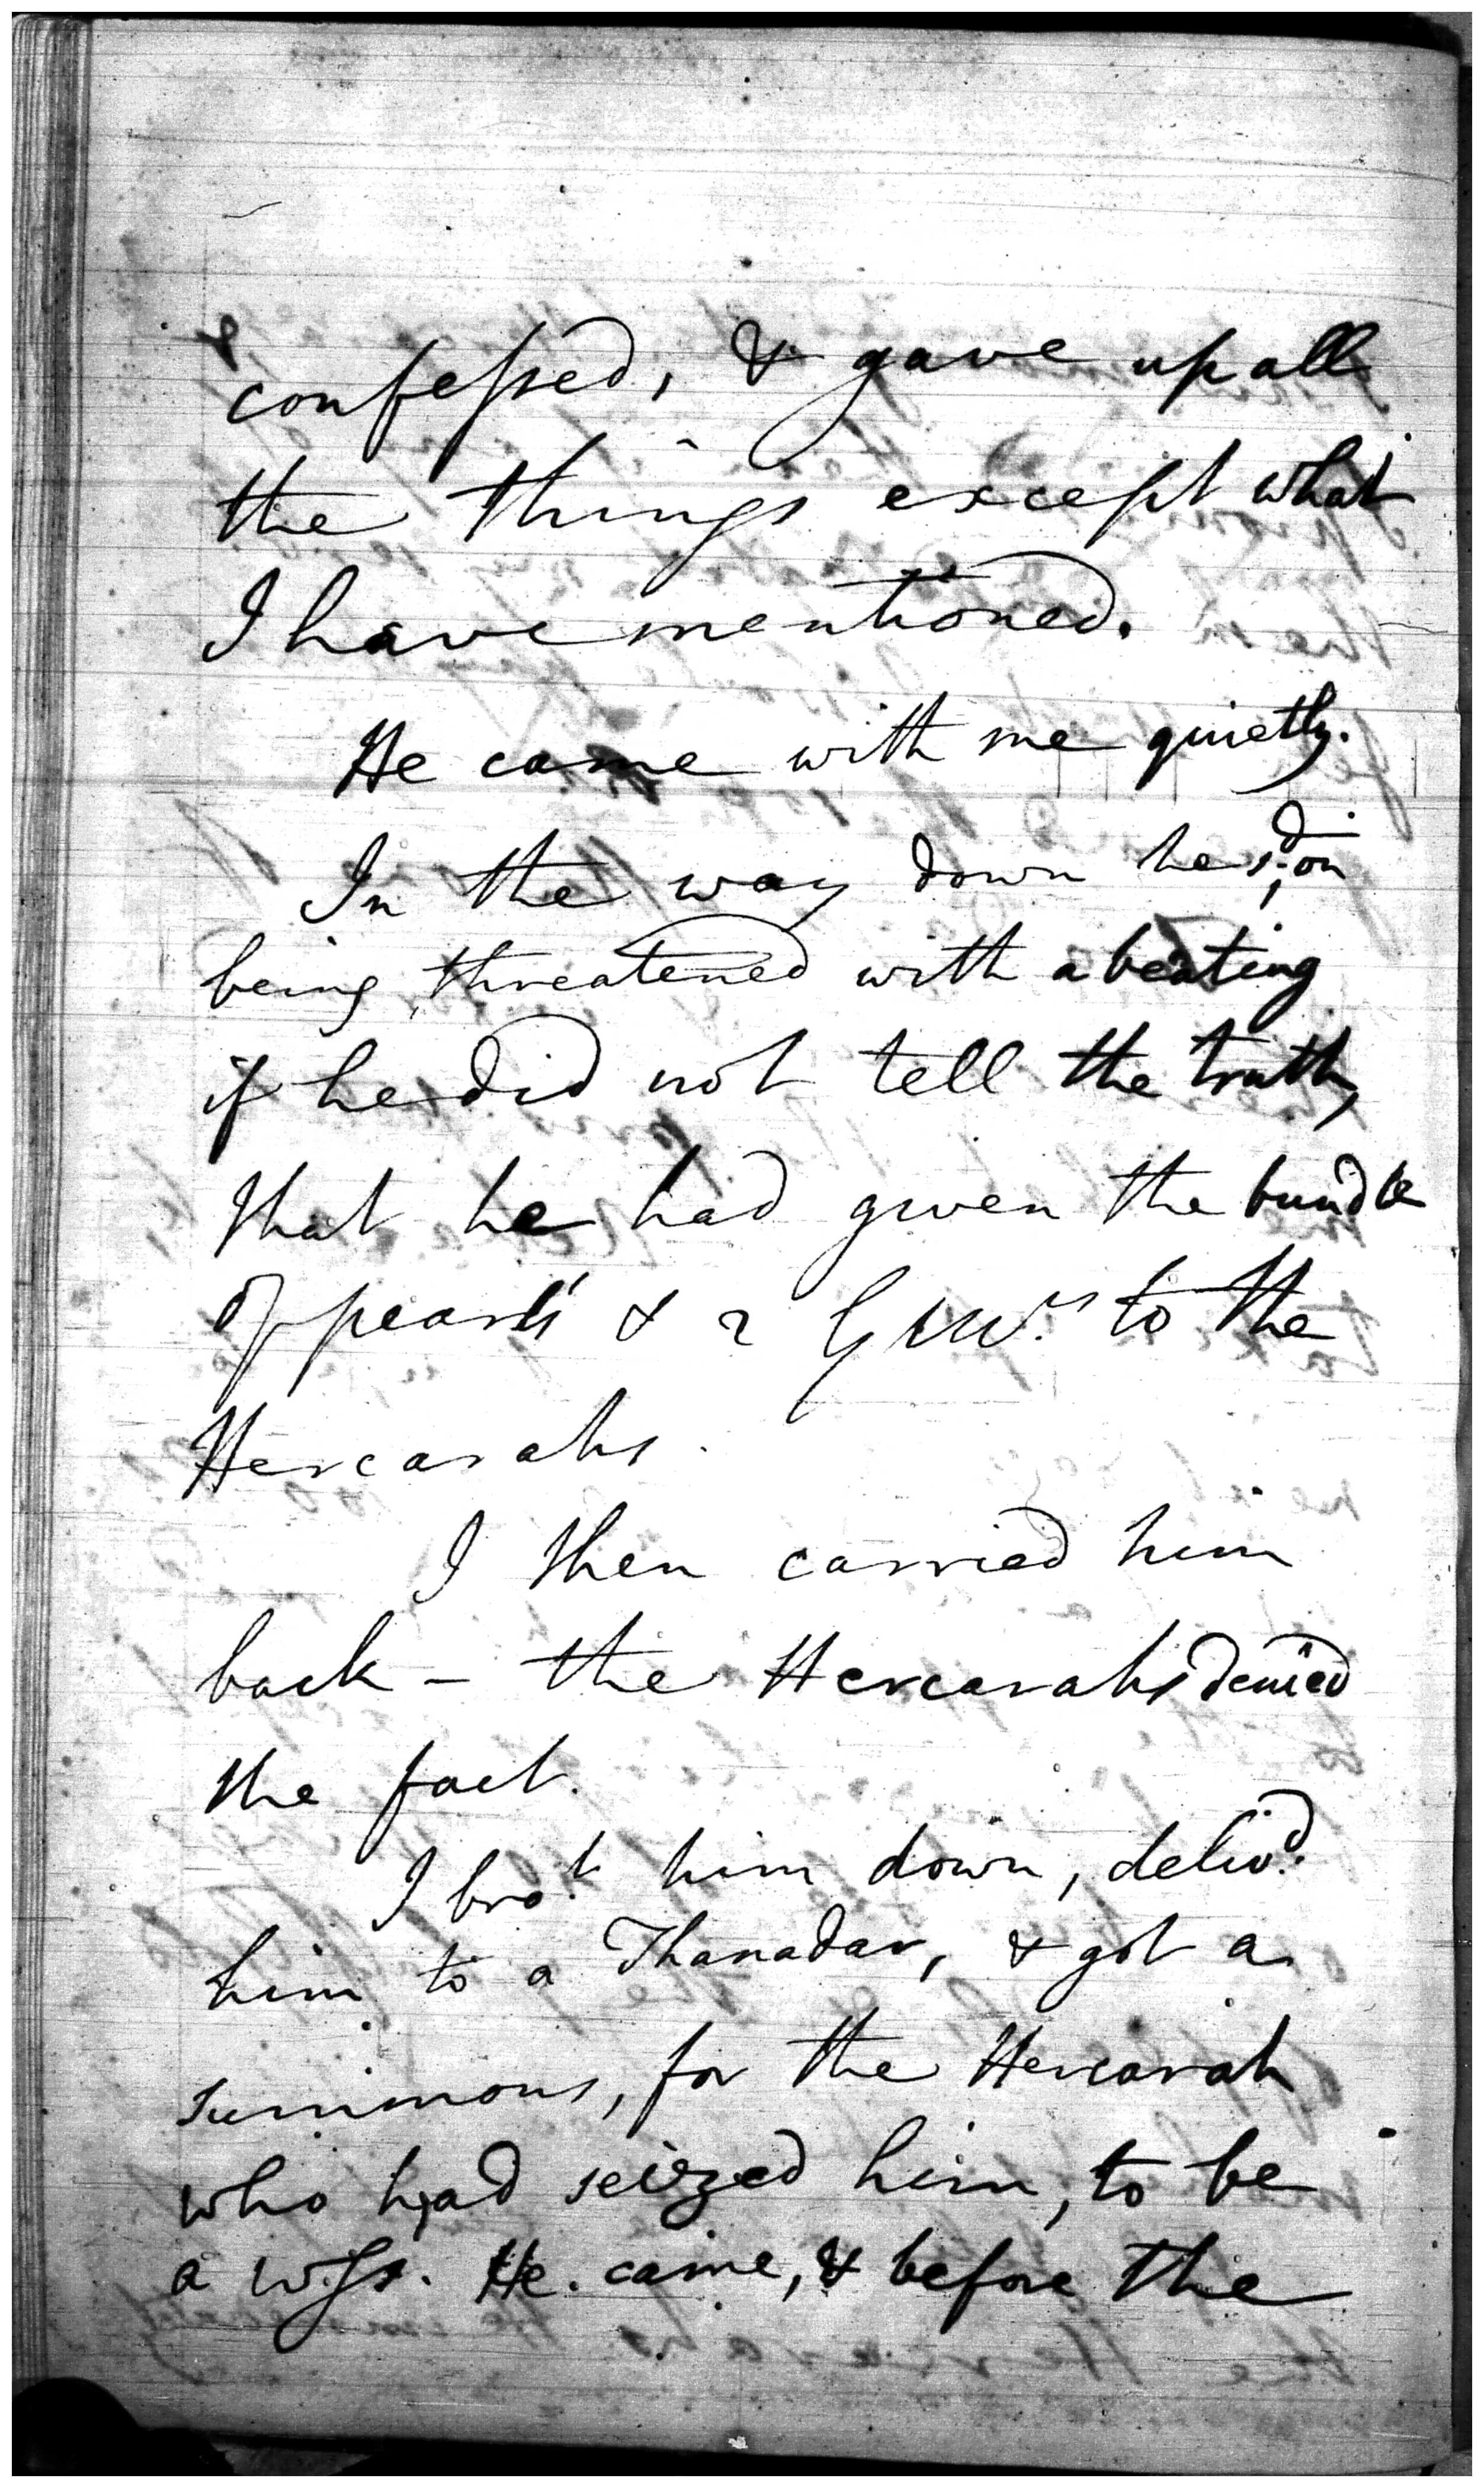 &
confessed, & gave up all
the things except what
I have mentioned.
He came with me quietly.
In the way down he sd, on
being threatened with a beating
if he did not tell the truth,
that he had given the bundle
of pearls & 2 G Mrs to the
Hercarahs.
I then carried him
back - the Hercarahs denied
the fact.
I brot him down, delivd
him to a Thanadar, & got a
summons, for the Hercarah
who had seized him, to be
a wss. He came, & before the